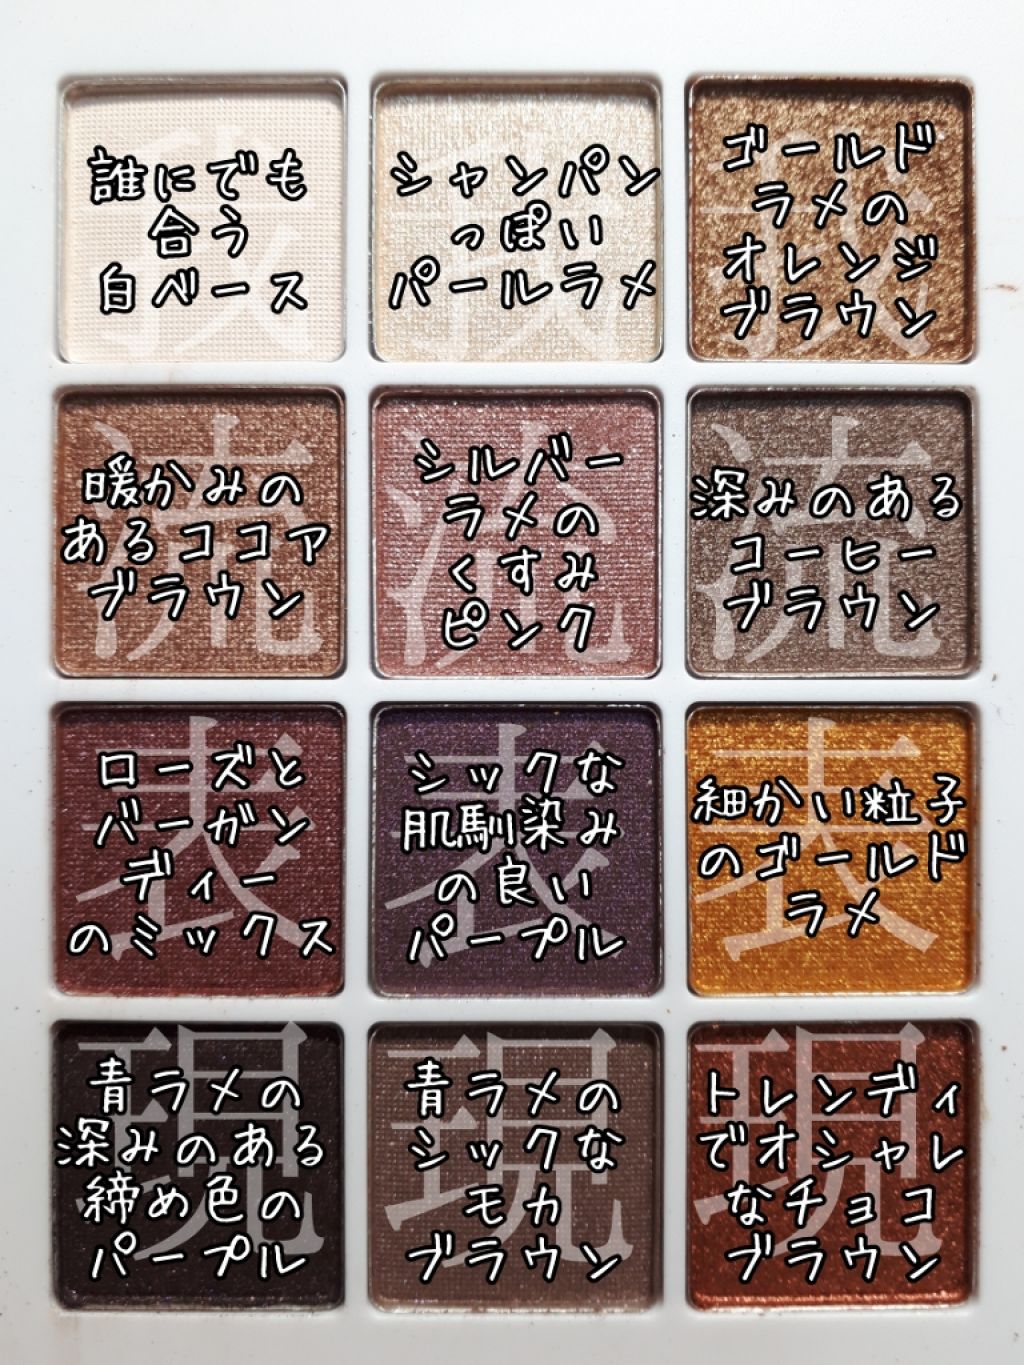 誰にでも
合う
白ベース
シャンパン
っぽい
パールラメ
ゴールド
ラメの
オレンジ
ブラウン
流
暖かみの
あるココア
ブラウン
流
シルバー
ラメの
くすみ
ピンク
流
深みのある
コーヒー
ブラウン
表
ローズと
バーガン
ディー
のミックス
表
シックな
肌馴染み
の良い
パープル
表
細かい粒子
のゴールド
ラメ
現
青ラメの
深みのある
締め色の
パープル
現
青ラメの
シックな
モカ
ブラウン
現
トレンディ
でオシャレ
なチョコ
ブラウン